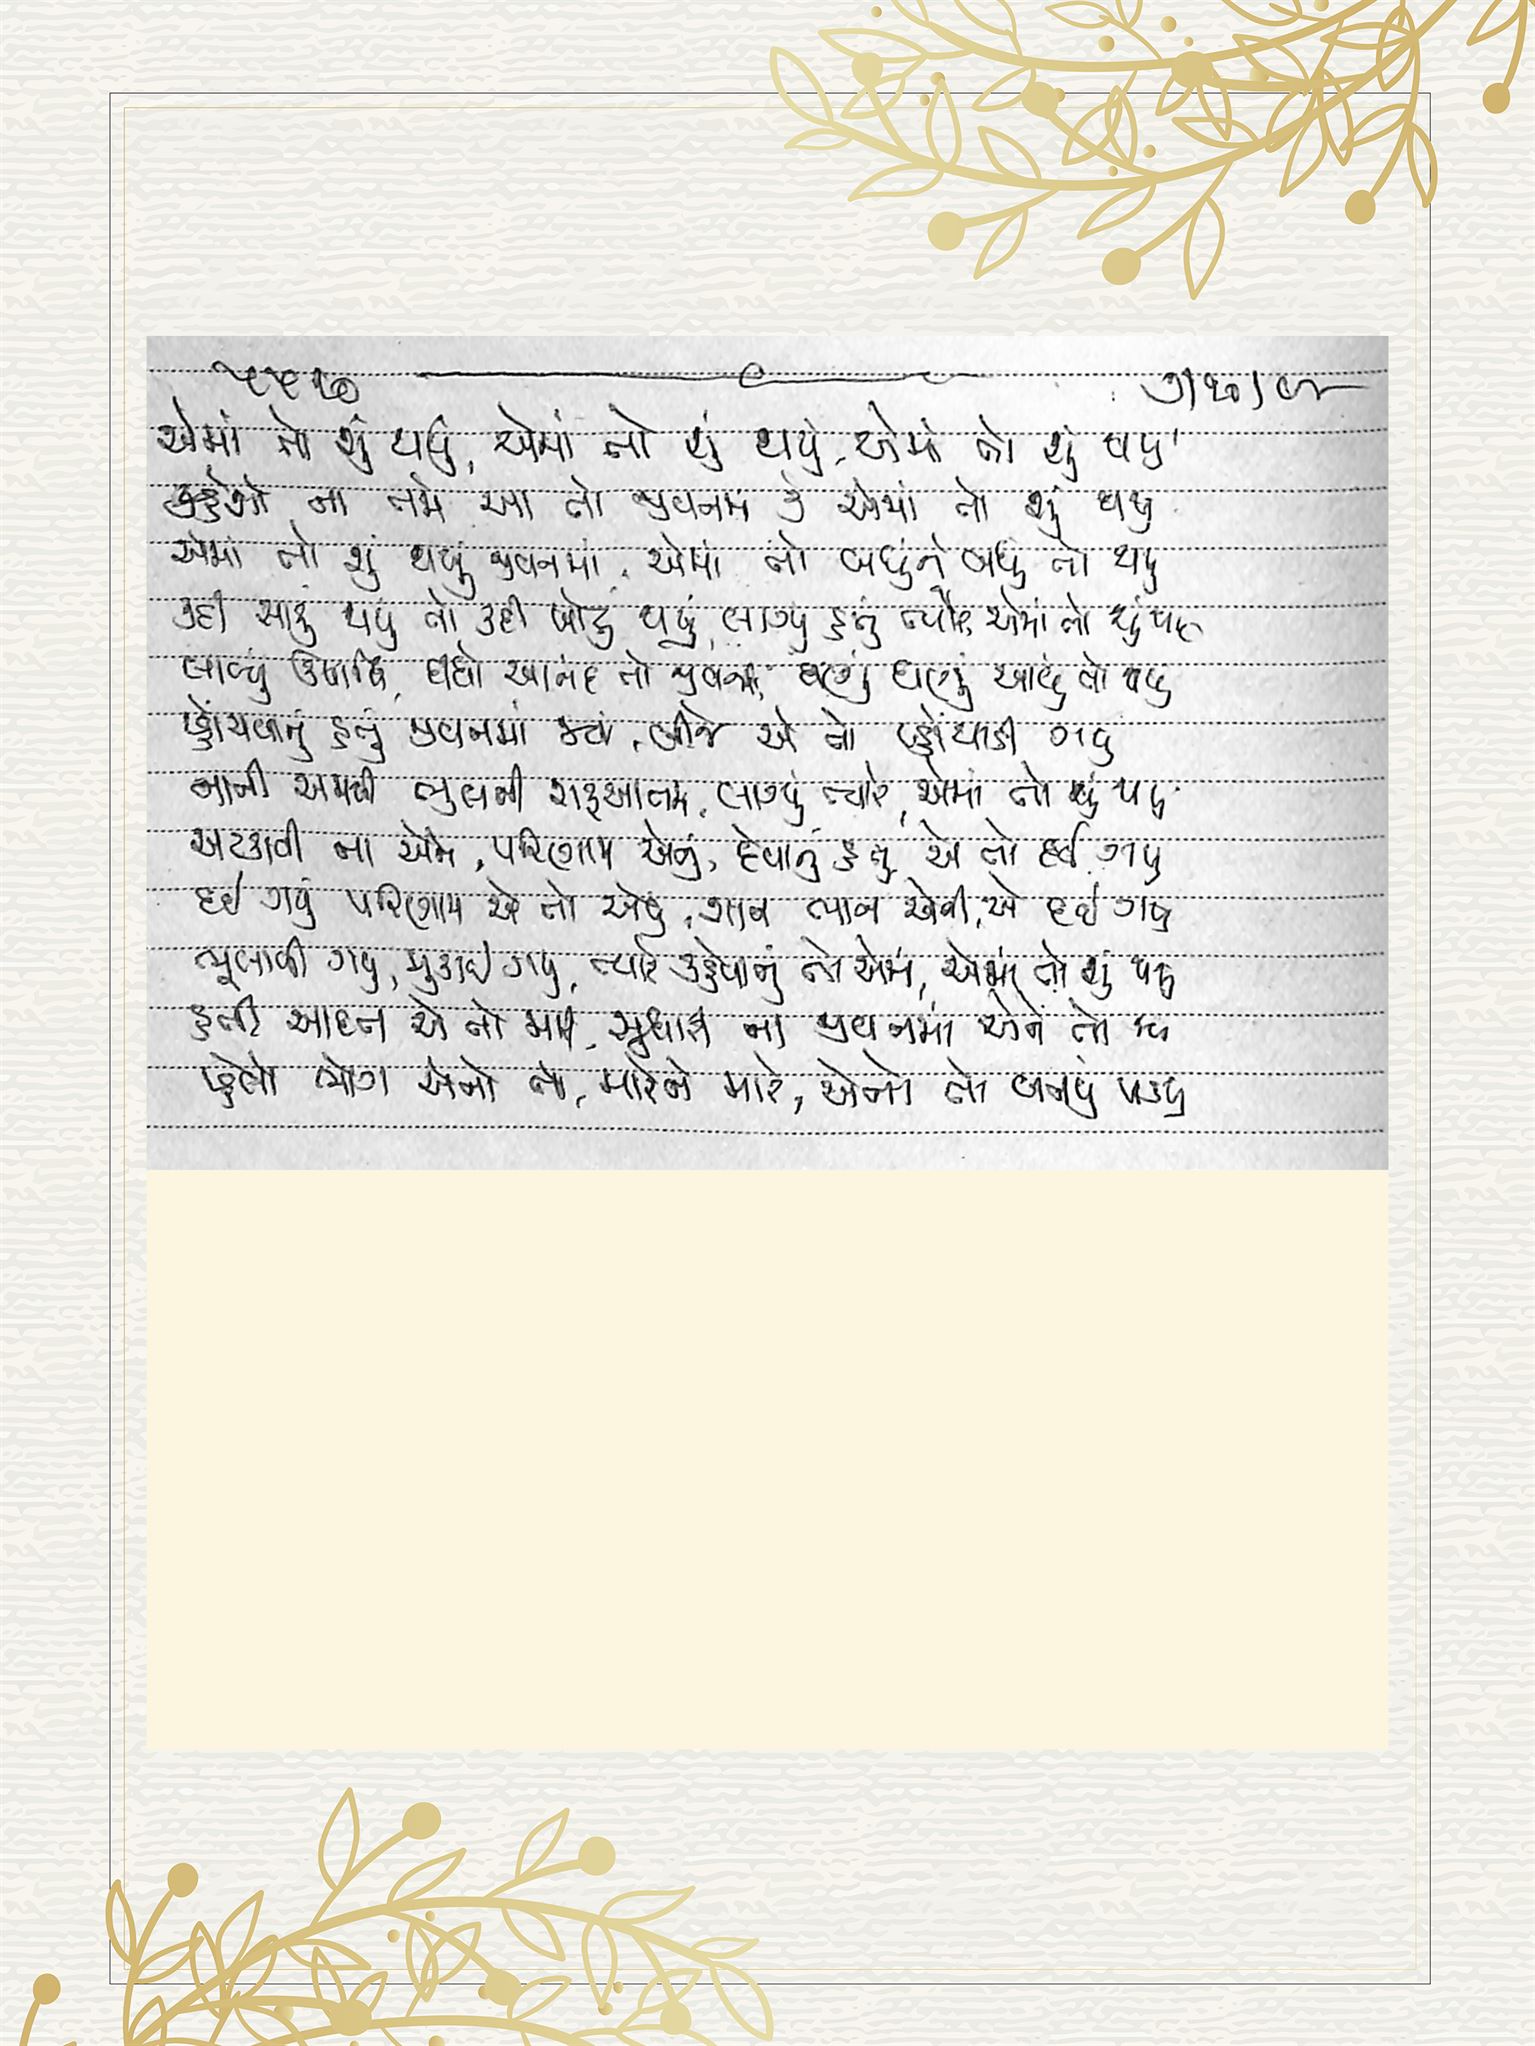 એમાં તો શું થયું, એમાં તો શું થયું, એમાં તો શું થયું
કહેશો ના તમે આ તો જીવનમાં રે એમાં તો શું થયું
એમાં તો શું થયું જીવનમાં, એમાં તો બધુંને બધું તો થયું
કદી સારું થયું તો કદી ખોટું થયું, લાગ્યું હતું ત્યારે એમાં તો શું થયું
લાવ્યું ઉપાધિ, દીધો આનંદ તો જીવનમાં, ઘણું ઘણું આવું તો થયું
પહોંચવાનું હતું જીવનમાં ક્યાં, બીજે એ તો પહોંચાડી ગયું
નાની અમથી ભુલની શરૂઆતમાં, લાગ્યું ત્યારે, એમાં તો શું થયું
અટકાવી ના એને, પરિણામ એનું, દેવાનું હતું એ તો દઈ ગયું
દઈ ગયું પરિણામ એ તો એવું, ભાન એવી, એ દઈ ગયું
ભૂલાવી ગયું, મુકાઈ ગયું, ત્યારે કહેવાનું તો એમાં, એમાં તો શું થયું
હતી આદત એ તો મારી, સુધારી ના જીવનમાં એને તો
પહેલો ભોગ એનો તો, મારેને મારે, એનો તો બનવું પડયું